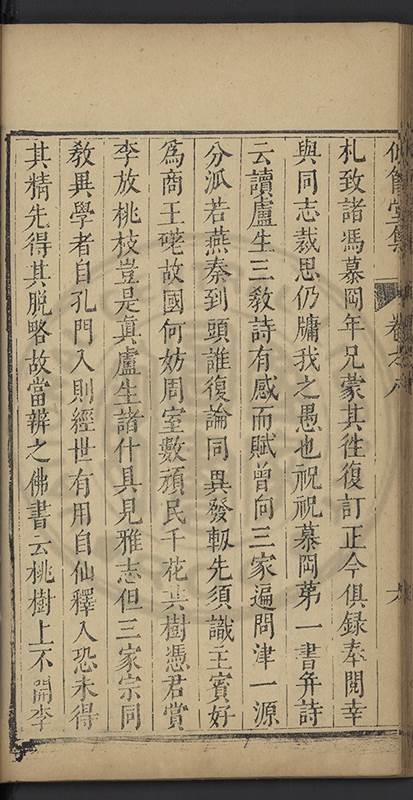 卷之八
札致諸馮慕岡年兄蒙其往復訂正今俱録奉閲幸
與同志裁思仍牗我之愚也祝祝慕岡第一書并詩
云讀盧生三敎詩有感而賦曾向三家遍問津一源
分派若燕秦到頭誰復論同異發軔先須識主賓好
為商王毟故國何妨周室數頑民千花共樹憑君賞
李放桃枝豈是真盧生諸什具見雅志但三家宗同
敎異學者自孔門入則經世有用自仙釋入恐未得
其精先得其脱略故當辨之佛書云桃樹上不開李